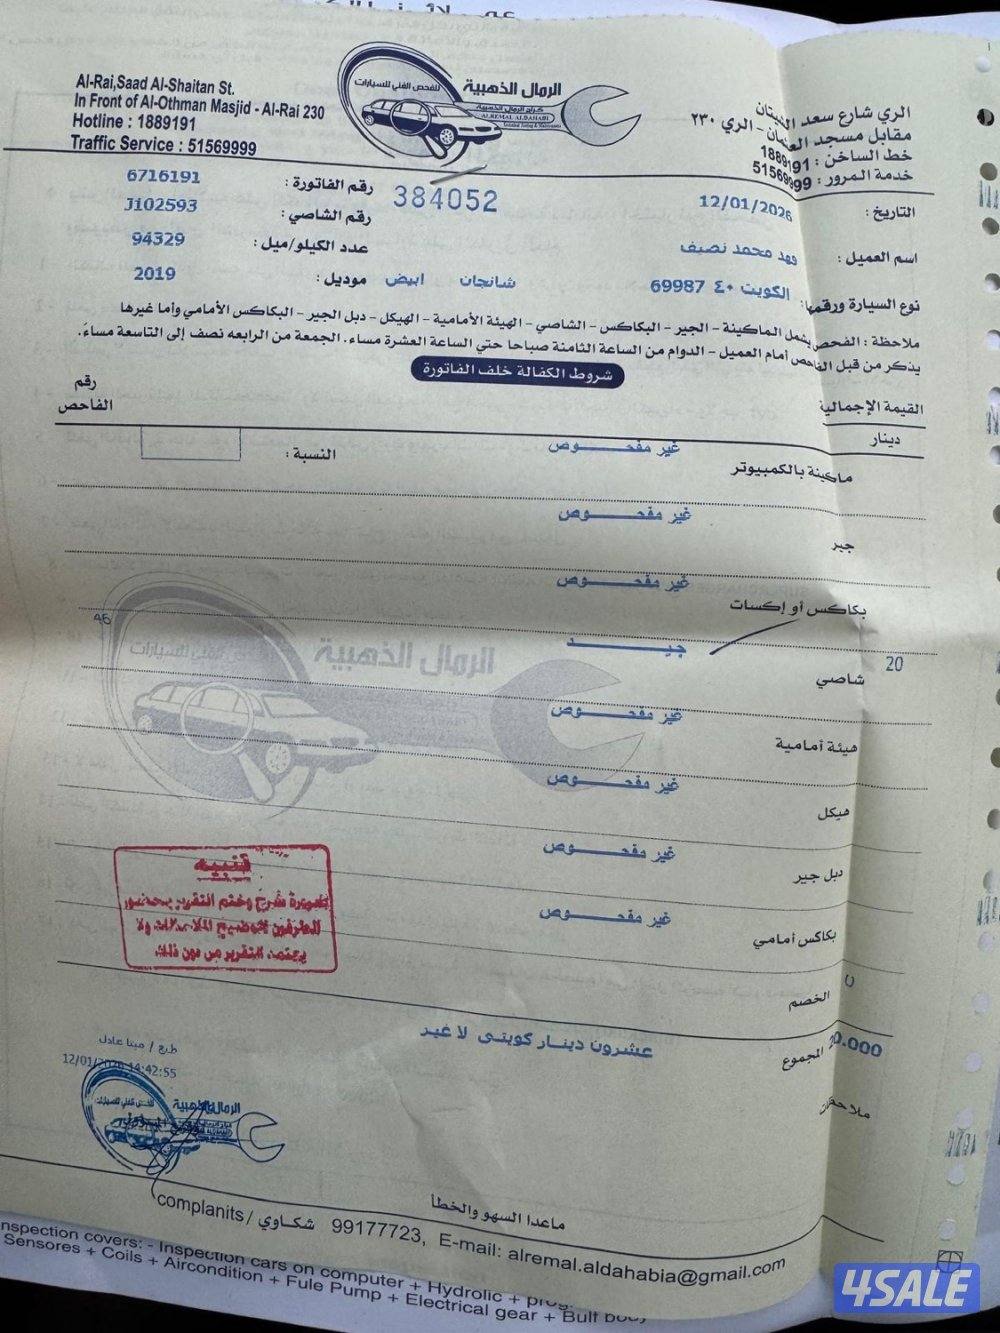 Al-Rai,Saad Al-Shaitan St.
In Front of Al-Othman Masjid - Al-Rai 230
Hotline : 1889191
Traffic Service : 51569999
الرمال الذهبية
للفحص الفني للسيارات
كراج الرمال الذهبية
ALREMAL ALDAHABI
الري شارع سعد
مقابل مسجد - الري ٢٣٠
خط الساخن : 1889191
خدمة المرور : 51569999
التاريخ : 12/01/2026
384052
رقم الفاتورة : 6716191
رقم الشاصي : J102593
اسم العميل : فهد محمد نصيف
عدد الكيلو/ميل : 94329
نوع السيارة ورقمها: الكويت ٤٠ 69987 شانجان ابيض
موديل : 2019
ملاحظة : الفحص يشمل الماكينة - الجير - البكاكس - الشاصي - الهيئة الأمامية - الهيكل - دبل الجير - البكاكس الأمامي وأما غيرها
يذكر من قبل الفاحص أمام العميل - الدوام من الساعة الثامنة صباحا حتي الساعة العشرة مساء. الجمعة من الرابعه نصف إلى التاسعة مساءً.
شروط الكفالة خلف الفاتورة
القيمة الإجمالية
دينار
رقم
الفاحص
ماكينة بالكمبيوتر غير مفحوص النسبة :
جير غير مفحوص
بكاكس أو إكسات غير مفحوص
20 شاصي جيد 46
هيئة أمامية غير مفحوص
هيكل غير مفحوص
دبل جير غير مفحوص
بكاكس أمامي غير مفحوص
الخصم 0
المجموع 20.000 عشرون دينار كويتى لا غير
الرمال الذهبية
تنبيه
بضرورة شرح وختم التقرير بحضور
الطرفين لتوضيح الملاحظات ولا
يعتمد التقرير من دون ذلك
طبع / مينا عادل
12/01/2026 14:42:55
الرمال الذهبية
ماعدا السهو والخطأ
complanits / شكاوي 99177723, E-mail: alremal.aldahabia@gmail.com
nspection covers: - Inspection cars on computer + Hydrolic +
Sensores + Coils + Aircondition + Fule Pump + Electrical gear + Bulf
4SALE